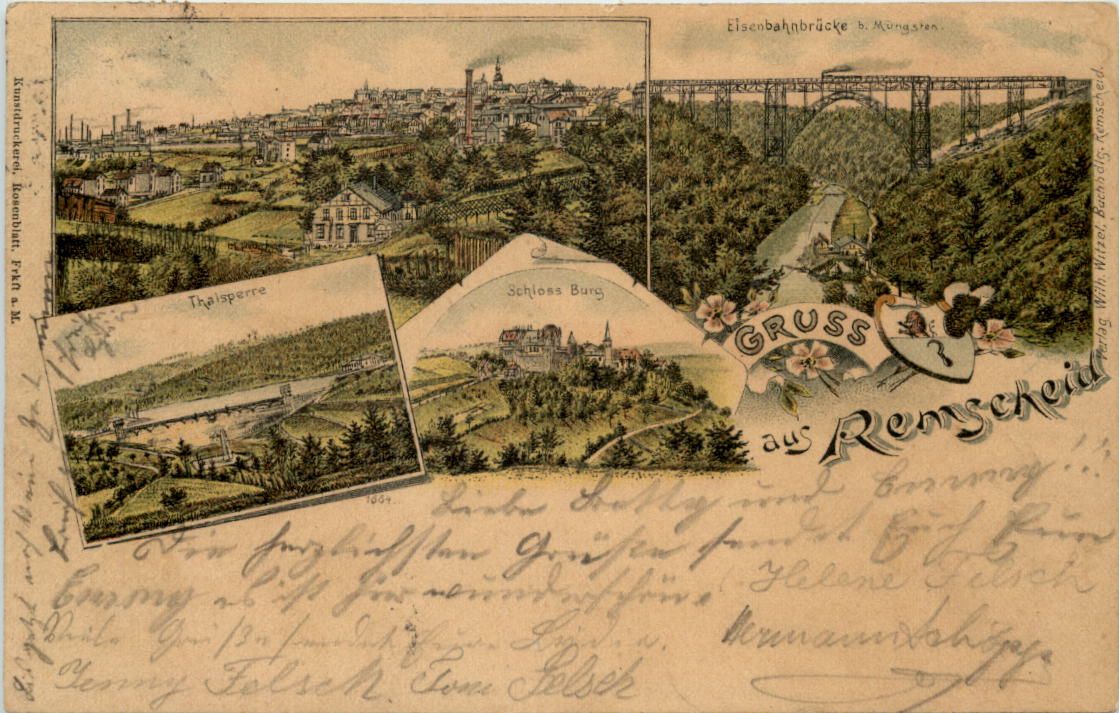 Eisenbahnbrücke b. Müngsten.
Kunstdruckerei, Rosenblatt, Frkft a. M.
Verlag Wilh. Witzel, Buchhdlg. Remscheid.
Thalsperre
Schloss Burg
GRUSS
aus Remscheid
1884.
Liebe Betty und Emmy!!!
Die herzlichsten Grüße sendet Euch Eure
Emmy es ist hier wunderschön.
Helene Felsch
Viele Grüße sendet Eure
Hermann Schöpp
Jenny Felsch. Toni Felsch